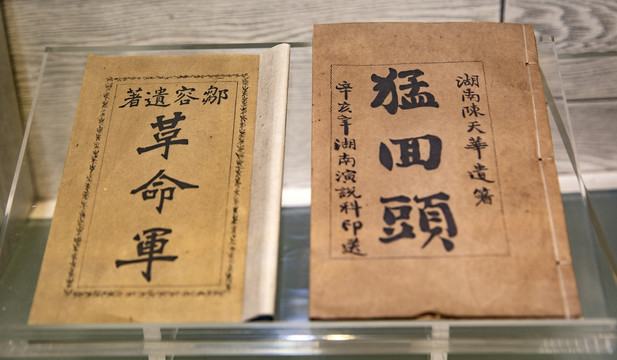 鄒容遺著
革命軍
湖南陳天華遺箸
猛囬頭
辛亥年湖南演說科印送